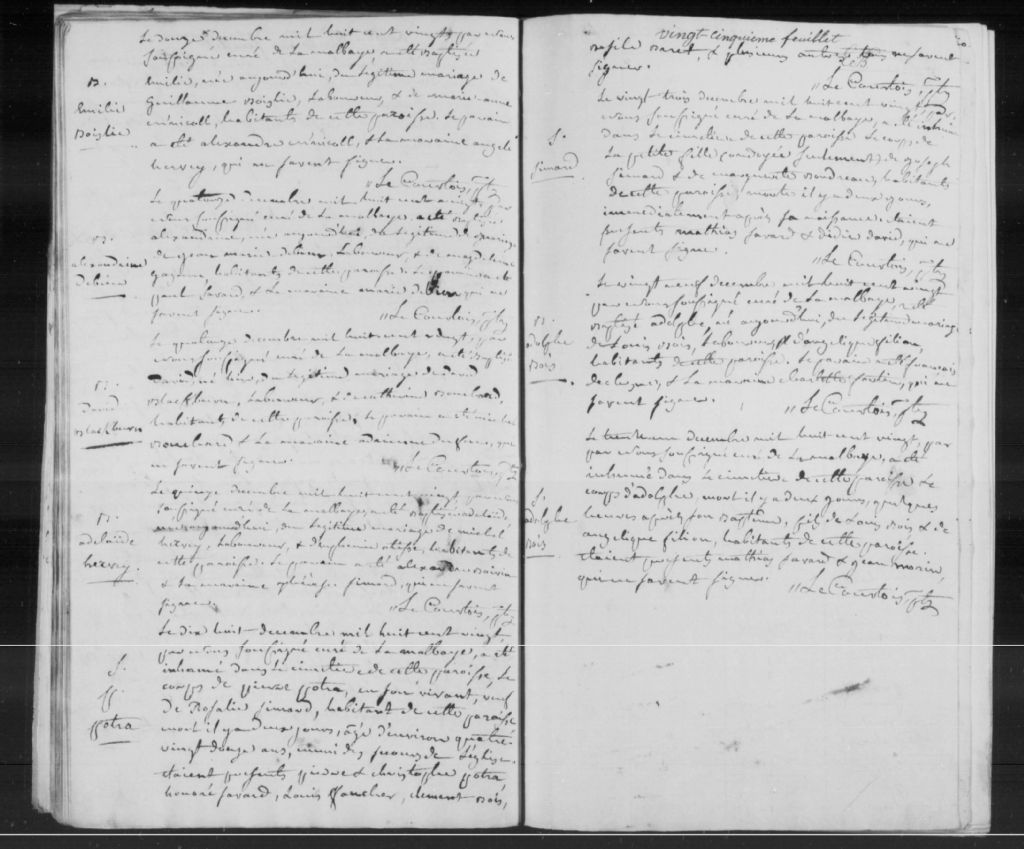 Le douze decembre mil huit cent vingt, par nous
soussigné curé de La malbaye, a été Baptisée
Emilie, née aujourd'hui, du légitime mariage de
B.
Emilie
Boislie
Guillaume Boislie, Laboureur, & de marie anne
habitants de cette paroisse. Le parain
a été alexandre & La maraine angele
hervey, qui ne savent signer.
"Le Courtois, ptre
Le quatorze decembre mil huit cent vingt, par
nous soussigné curé de La malbaye, a été Baptisée
B.
alexandrine
Debien
alexandrine, née aujourd'hui, du Legitime mariage
de jean marie debien, Laboureur, & de
habitants de cette paroisse. Le parain a été
paul savard, & La maraine marie qui ne
savent signer.
"Le Courtois, ptre
Le quatorze decembre mil huit cent vingt, par
nous soussigné curé de La malbaye, a été Baptisé
B.
David
Blackburn
David, né hier, du Legitime mariage de david
Blackburn, Laboureur, & de catherine Bouchard,
habitants de cette paroisse. Le parain a été
Bouchard & La maraine adrienne dufour, qui
ne savent signer.
"Le Courtois, ptre
Le quinze decembre mil huit cent vingt, par nous
soussigné curé de La malbaye, a été Baptisée adelaide,
B.
adelaide
hervey.
née aujourd'hui, du Legitime mariage de michel
hervey, Laboureur, & d'euphemie habitants de
cette paroisse. Le parain a été alexandre
& La maraine simard, qui ne savent
signer.
"Le Courtois, ptre
Le dix huit decembre mil huit cent vingt,
par nous soussigné curé de La malbaye, a été
S.
p.
potra
inhumé dans Le cimetière de cette paroisse, Le
corps de pierre potra, en son vivant, veuf
de Rosalie Simard, habitant de cette paroisse
mort il y a deux jours, âgé d'environ quatre-
vingt douze ans, muni des secours de L'église.
étaient presents pierre & christophe potra,
honoré savard, Louis clement Bois,
vingt-cinquieme feuillet
Basile & plusieurs autres qui ne savent
signer.
"Le Courtois, ptre
Le vingt trois decembre mil huit cent vingt, par
nous soussigné curé de La malbaye, a été inhumé
S.
simard
dans Le cimetière de cette paroisse Le corps de
La petite fille (ondoyée seulement) de joseph
simard & de marguerite Boudreau, habitants
de cette paroisse, morte il y a deux jours,
immediatement après sa naissance. étaient
presents mathias savard & didier david, qui ne
savent signer.
"Le Courtois, ptre
Le vingt neuf decembre mil huit cent vingt
par nous soussigné curé de La malbaye, a été
B.
adolphe
Bois
Baptisé adolphe, né aujourd'hui, du Legitime mariage
de Louis Bois, Laboureur, & d'angelique filion,
habitants de cette paroisse. Le parain a été françois
& La maraine charlotte qui ne
savent signer.
"Le Courtois, ptre
Le trente un decembre mil huit cent vingt, par
par nous soussigné curé de La malbaye, a été
inhumé dans Le cimetière de cette paroisse Le
S.
adolphe
Bois
corps d'adolphe, mort il y a deux jours, quelques
heures après son Baptême, fils de Louis Bois & de
angelique filion, habitants de cette paroisse.
étaient presents mathias savard & jean morin,
qui ne savent signer.
"Le Courtois, ptre